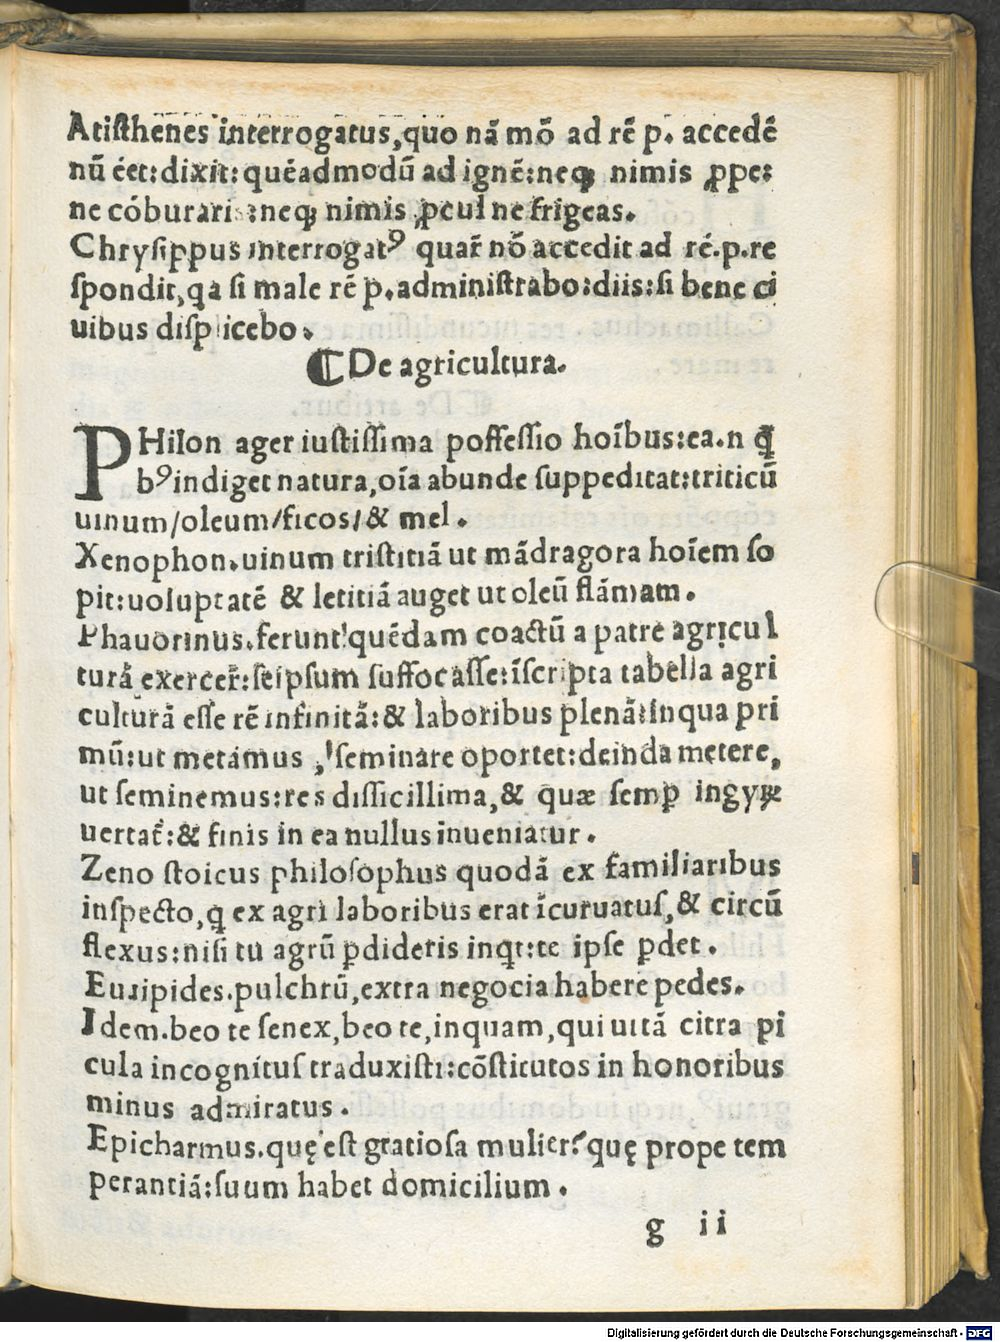 Atisthenes interrogatus,quo nā mō ad rē p. accedē
nū éet:dixit:quēadmodū ad ignē:neq; nimis ꝓpe:
ne cóburaris:neq; nimis ꝓcul ne frigeas.
Chrysippus interrogatꝰ quar̄ nō accedit ad ré.p.re
spondit,qa si male rē p.administrabo:diis:si bene ci
uibus displicebo.
¶De agricultura.
PHilon ager iustissima possessio hoībus:ea.n q̄
bꝰindiget natura,oīa abunde suppeditat:triticū
uinum/oleum/ficos/& mel.
Xenophon.uinum tristitiā ut mādragora hoīem so
pit:uoluptatē & letitiā auget ut oleū flāmam.
Phauorinus.ferunt quēdam coactū a patre agricul
turā exercer̄:seipsum suffocasse:īscripta tabella agri
culturā esse rē infinitā:& laboribus plenā:inqua pri
mū:ut metamus , seminare oportet:deinda metere,
ut seminemus:res dissicillima,& quæ semꝑ ingyꝝ
uertat̄:& finis in ea nullus inueniatur.
Zeno stoicus philosophus quodā ex familiaribus
inspecto,ꝙ ex agri laboribus erat īcuruatus,& circū
flexus:nisi tu agrū ꝑdideris inqt:te ipse ꝑdet.
Euripides.pulchrū,extra negocia habere pedes.
Idem.beo te senex,beo te,inquam,qui uitā citra pi
cula incognitus traduxisti:cōstitutos in honoribus
minus admiratus.
Epicharmus.quę est gratiosa mulier?quę prope tem
perantiā:suum habet domicilium.
g ii
Digitalisierung gefördert durch die Deutsche Forschungsgemeinschaft - DFG